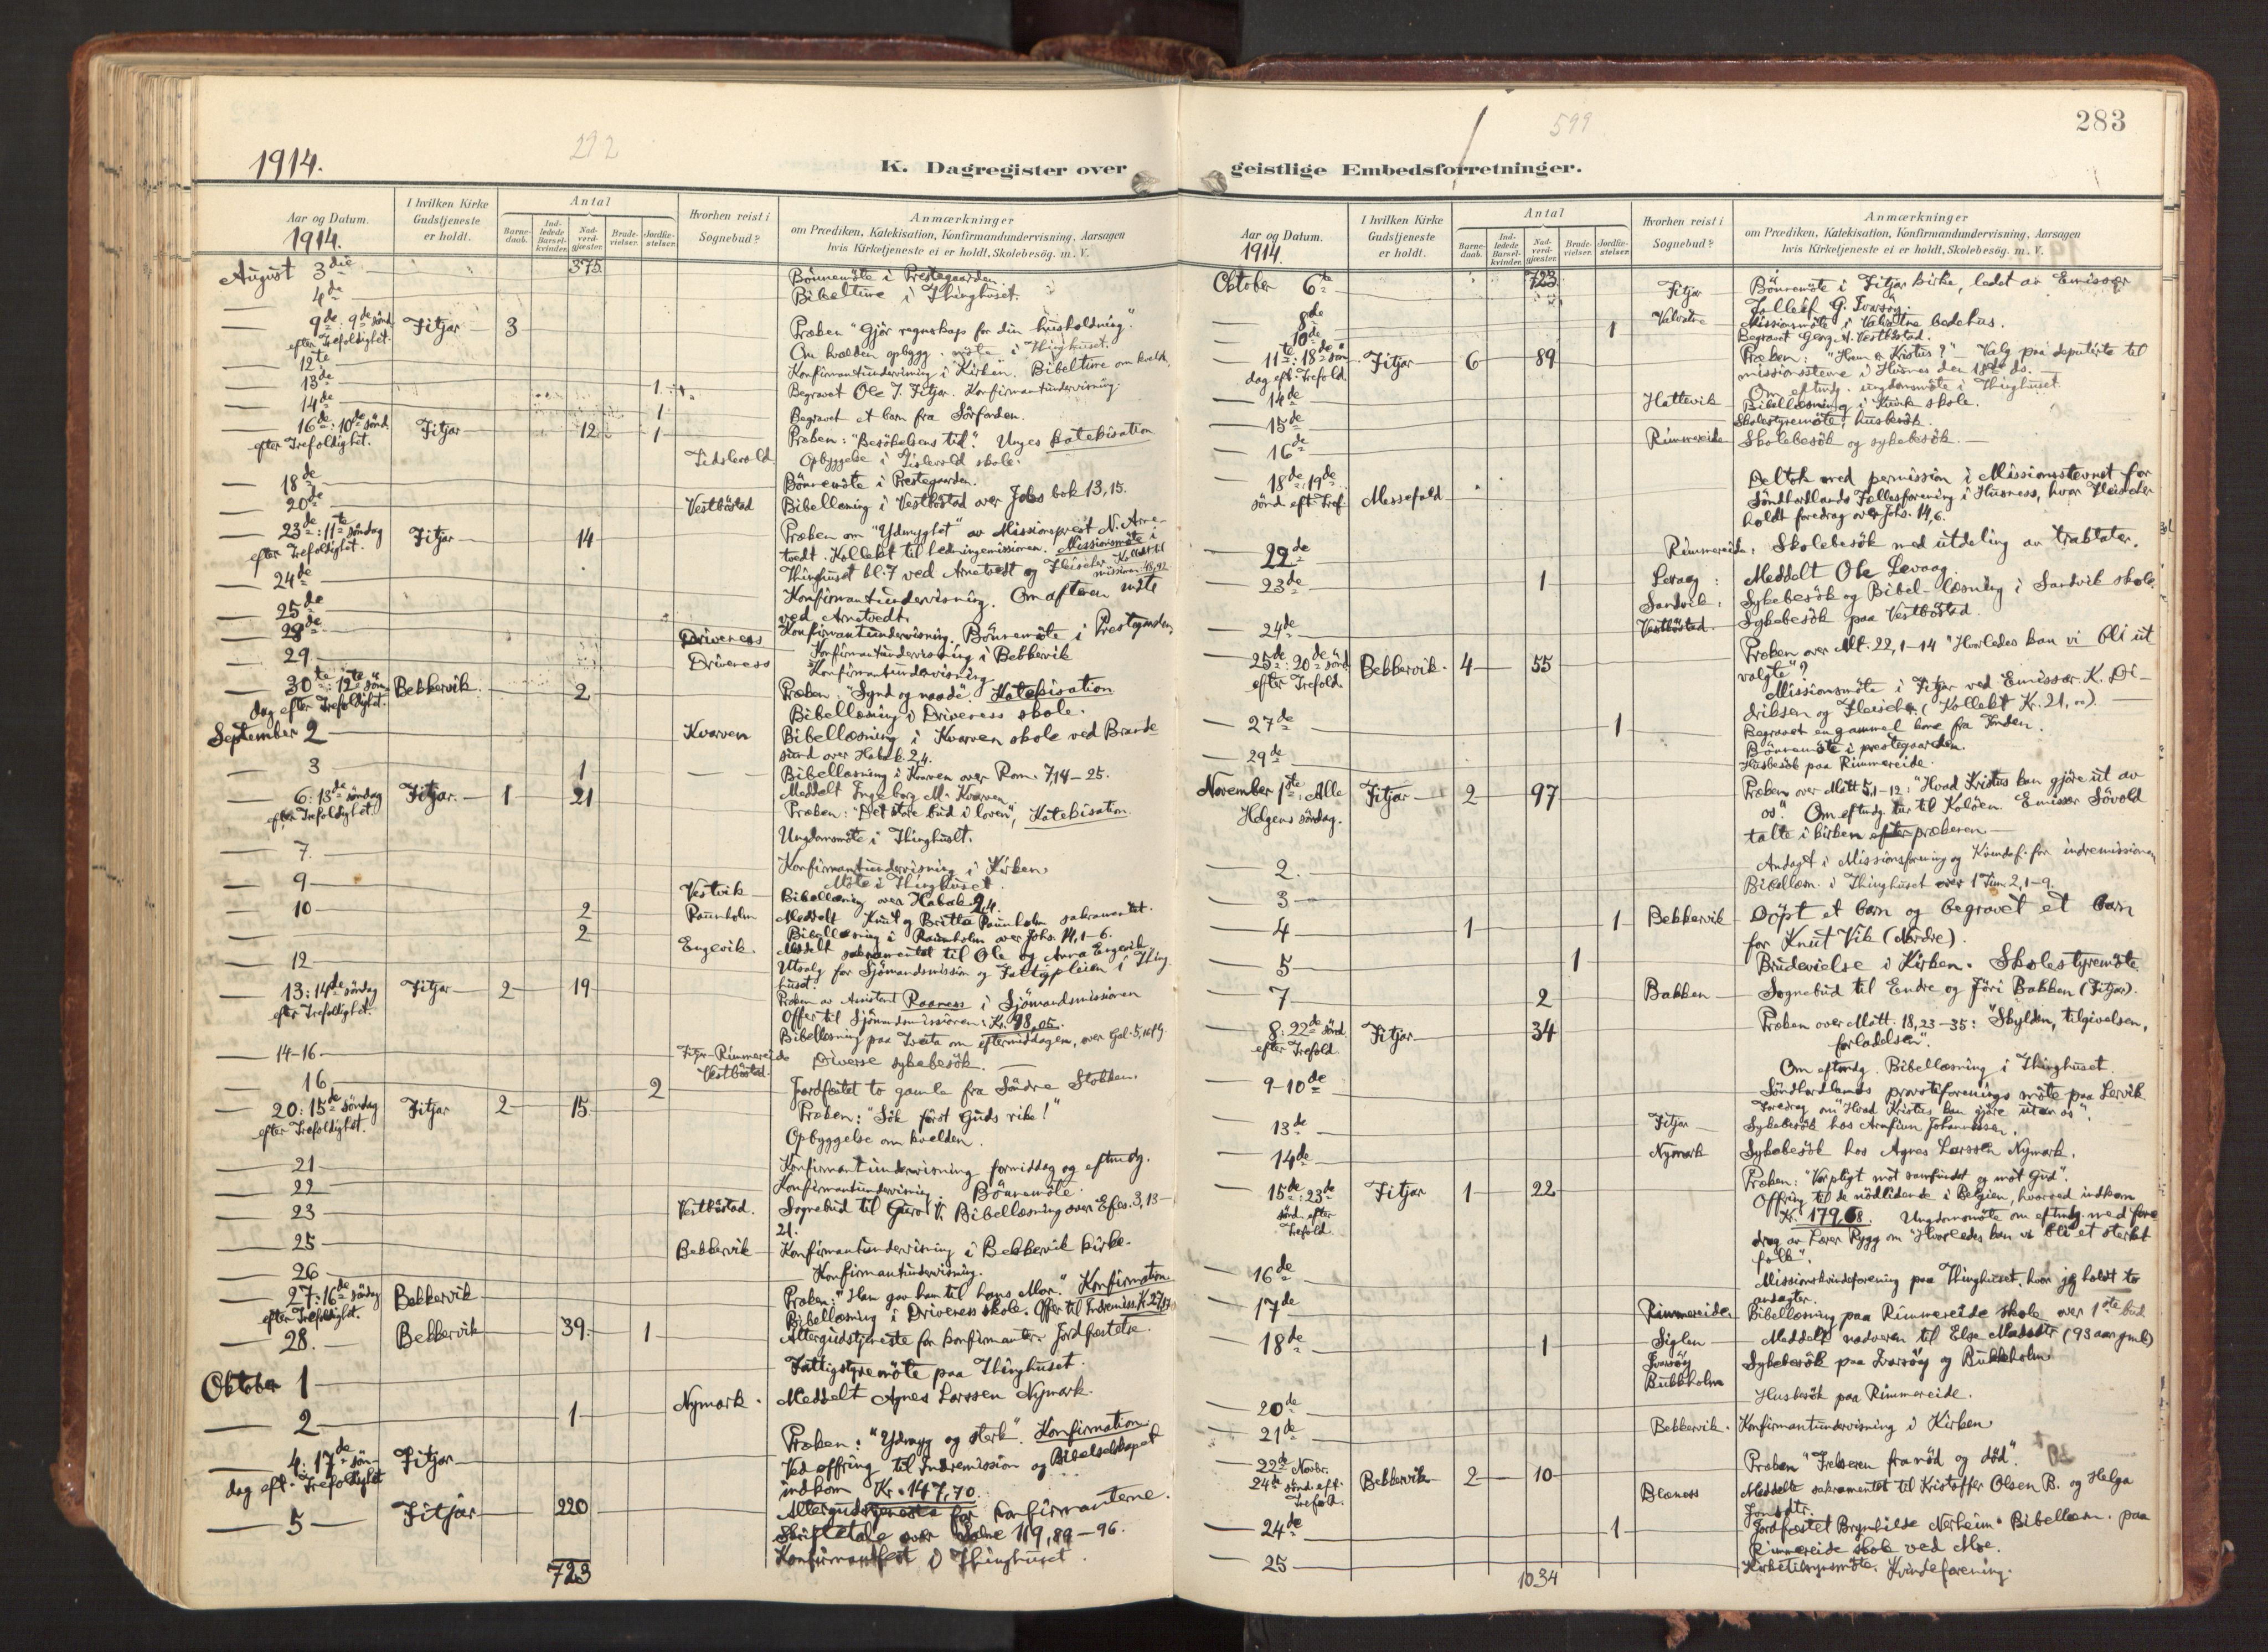 283
292
599
1914.
K. Dagregister over geistlige Embedsforretninger.
Aar og Datum.
1914.
I hvilken Kirke
Gudstjeneste
er holdt.
Antal
Barne-
daab.
Ind-
ledede
Barsel-
kvinder.
Nad-
verd-
gjæster.
Brude-
vielser.
Jordfæ-
stelser.
Hvorhen reist i
Sognebud?
Anmærkninger
om Prædiken, Katekisation, Konfirmandundervisning, Aarsagen
hvis Kirketjeneste ei er holdt, Skolebesøg. m. V.
August 3die 375 Bönnemöte i Prestegaarden
4de Bibeltime i Thinghuset.
9de: 9de sönd. Fitjar 3 Præken "Gjör regnskap for din husholdning."
efter Trefoldighet. Om kvelden opbygg. möte i Thinghuset.
12te Konfirmantundervisning i Kirken. Bibeltime om kveld.
13de 1 Begravet Ole J. Fitjar. Konfirmantundervisning.
14de 1 Begravet et barn fra Sörfonden.
16de: 10de sönd. Fitjar 12 1 Præken: "Besökelsens tid". Unges katekisation
efter Trefoldighet.
Opbyggelse i skole.
18de Bönnemöte i Prestegaarden.
20de Vestböstad Bibellæsning i Vestböstad over Jobs bok 13,15.
23de: 11te söndag Fitjar 14 Præken om "Ydmyghet" av Missionsprest N. Arne-
efter Trefoldighet. tvedt. Kollekt til hedningemissionen. Missionsmöte i
Thinghuset kl. 7 ved Arnetvedt og Fleischer. Kollekt til
missionen 48,92
24de Konfirmantundervisning. Om aftenen möte
ved Arnetvedt.
25de Konfirmantundervisning. Bönnemöte i Prestegaarden
28de Driveness Konfirmantundervisning i Bekkervik
29 Driveness Konfirmantundervisning
30te: 12te sön- Bekkervik. 2 Præken: "Synd og naade". Katekisation
dag efter Trefoldighet. Bibellæsning i Driveness skole.
September 2 Kvarven Bibellæsning i Kvarven skole ved Brande
sund over Habak. 2,4.
3 1 Bibellæsning i Kvarven over Rom. 7,14-25.
Meddelt Ingeborg M. Kvarven
6: 13de söndag Fitjar. 1 21 Præken: "Det store bud i loven", Katekisation.
efter Trefoldighet.
Ungdomsmöte i Thinghuset.
7. Konfirmantundervisning i Kirken
Möte i Thinghuset.
9 Vestvik Bibellæsning over Habak 2,4.
10 2 Raunholm Meddelt Knut og Britta Raunholm sakramentet.
Bibellæsning i Raunholm over Johs. 14,1-6.
2 Engevik. Meddelt sakramentet til Ole og Anna Engevik
12 Utsalg for Sjömandsmission og Fattigpleien i Thing
huset.
13: 14de söndag Fitjar 2 19 Præken av Assistent Raaness i Sjömandsmissionen
efter Trefoldighet. Offer til Sjömandsmissionen: Kr. 98,05.
Bibellæsning paa Tveita om eftermiddagen, over Gal. 5,
14-16 Fitjar-Rimmereide
Vestböstad. Diverse sykebesök.
16 2 Jordfæstet to gamle fra Söndre Stokken.
20: 15de söndag Fitjar 2 15. Præken: "Sök först Guds rike!"
efter Trefoldighet. Opbyggelse om kvelden.
21 Konfirmantundervisning formiddag og eftmdg.
22 Konfirmantundervisning. Bönnemöte.
23 Vestböstad. Sognebud til Guro V. Bibellæsning over Efes. 3, 13-
21.
25 Bekkervik Konfirmantundervisning i Bekkervik kirke.
26 Konfirmantundervisning.
27: 16de söndag Bekkervik Præken: "Han gav ham til hans Mor." Konfirmation.
efter Trefoldighet. Bibellæsning i Driveness skole. Offer til Indremiss.
28. Bekkervik 39. 1 Altergudstjeneste for konfirmanter. Jordfæstelse.
Oktober 1 Fattigstyremöte paa Thinghuset.
2 1 Nymark. Meddelt Agnes Larssen Nymark.
4: 17de sön- Fitjar Præken: "Ydmyg og sterk". Konfirmation.
dag eft. Trefoldighet Ved offring til Indremission og Bibelselskapet
indkom Kr. 147,70.
5 Fitjar 220 Altergudstjeneste for konfirmanterne.
Skriftetale over Salme 119,89-96.
Konfirmantfest i Thinghuset.
723
Aar og Datum.
1914.
I hvilken Kirke
Gudstjeneste
er holdt.
Antal
Barne-
daab.
Ind-
ledede
Barsel-
kvinder.
Nad-
verd-
gjæster.
Brude-
vielser.
Jordfæ-
stelser.
Hvorhen reist i
Sognebud?
Anmærkninger
om Prædiken, Katekisation, Konfirmandundervisning, Aarsagen
hvis Kirketjeneste ei er holdt, Skolebesög. m. V.
Oktober 6te 723. Fitjar Bönnemöte i Fitjar kirke, ledet av Emissær
G. Ivarsöy.
8de Valvatne Missionsmöte i Valvatne bedehus.
10de 1 Begravet Georg A. Vestböstad.
11te: 18de sön Fitjar 6 89 Præken: "Hvem er Kristus?" Valg paa deputerte til
dag eft. Trefold. missionsstevne i Husnes den 18de ds.
Om eftmdg. ungdomsmöte i Thinghuset.
14de Hattevik Bibellæsning i skole.
15de Skolestyremöte, husbesök.
16de Rimmereide Skolebesök og sykebesök.
18de: 19de Messefald Deltok med permission i Missionsstevnet for
sönd. eft. Tref. Söndhordlands Fællesforening i Husness, hvor Fleischer
holdt foredrag over Johs. 14,6.
22de Rimmereide: Skolebesök med utdeling av traktater.
23de 1 Levaag: Meddelt Ole Levaag.
Sandvik: Sykebesök og Bibel-læsning i Sandvik skole.
24de Vestböstad. Sykebesök paa Vestböstad.
25de: 20de sönd. Bekkervik. 4 55 Præken over Mt. 22,1-14 "Hvorledes kan vi bli ut
efter Trefold. valgte"?
Missionsmöte i Fitjar ved Emissær K. Di-
driksen og Fleischer (Kollekt Kr. 21,00).
27de 1 Begravet en gammel kone fra
Bönnemöte i prestegaarden.
29de Husbesök paa Rimmereide.
November 1ste: Alle Fitjar 2 97 Præken over Matt. 5,1-12: "Hvad Kristus kan gjöre ut av
Helgens söndag. os". Om eftmdg. tur til Kolöen. Emissær Sövold
talte i kirken efter prækenen.
2. Andagt i Missionsforening og Kvindef. for indremissionen
3 Bibellæsn. i Thinghuset over 1 Tim. 2,1-9.
4 1 1 Bekkervik Döpt et barn og begravet et barn
for Knut Vik (Nordre).
5 1 Brudevielse i Kirken. Skolestyremöte.
7 2 Bakken Sognebud til Endre og Jöri Bakken (Fitjar).
8: 22de sönd. Fitjar 34 Præken over Matt. 18,23-35: "Skylden, tilgivelsen,
efter Trefold. forladelsen".
Om eftmdg. Bibellæsning i Thinghuset.
9-10de Söndhordlands provstiforenings möte paa Lervik
Foredrag om "Hvad Kristus kan gjöre ut av os".
13de Fitjar Sykebesök hos Arnfinn Johannessen.
14de Nymark Sykebesök hos Agnes Larssen Nymark.
15de: 23de Fitjar 1 22 Præken: "Vor pligt mot samfundet og mot Gud".
sönd. efter
Trefold. Offring til de nödlidende i Belgien, hvorved indkom
Kr. 179,68. Ungdomsmöte om eftmdg. med fore
drag av Lærer Rygg om "Hvorledes kan vi bli et sterkt
folk".
16de Missionskvindeforening paa Thinghuset, hvor jeg holdt to
andagter.
17de Rimmereide. Bibellæsning paa Rimmereide skole over 1ste bud.
18de 1 Siglen Meddelt nadveren til Else Madsdtr (93 aar gml.)
Ivarsöy
Bukkholm Sykebesök paa Ivarsöy og Bukkholm
20de Husbesök paa Rimmereide.
21de Bekkervik. Konfirmantundervisning i Kirken
22de Novbr. Bekkervik 2 10 Præken "Frelseren fra nöd og död".
24de sönd. eft.
Trefold. Blæness Meddelt sakramentet til Kristoffer Olsen B. og Helga
Jonsdtr.
24de 1 Jordfæstet Brynhilde Nerheim. Bibellæsn. paa
Rimmereide skole ved Moe.
25 Kirketilsynsmöte. Kvindeforening.
1034